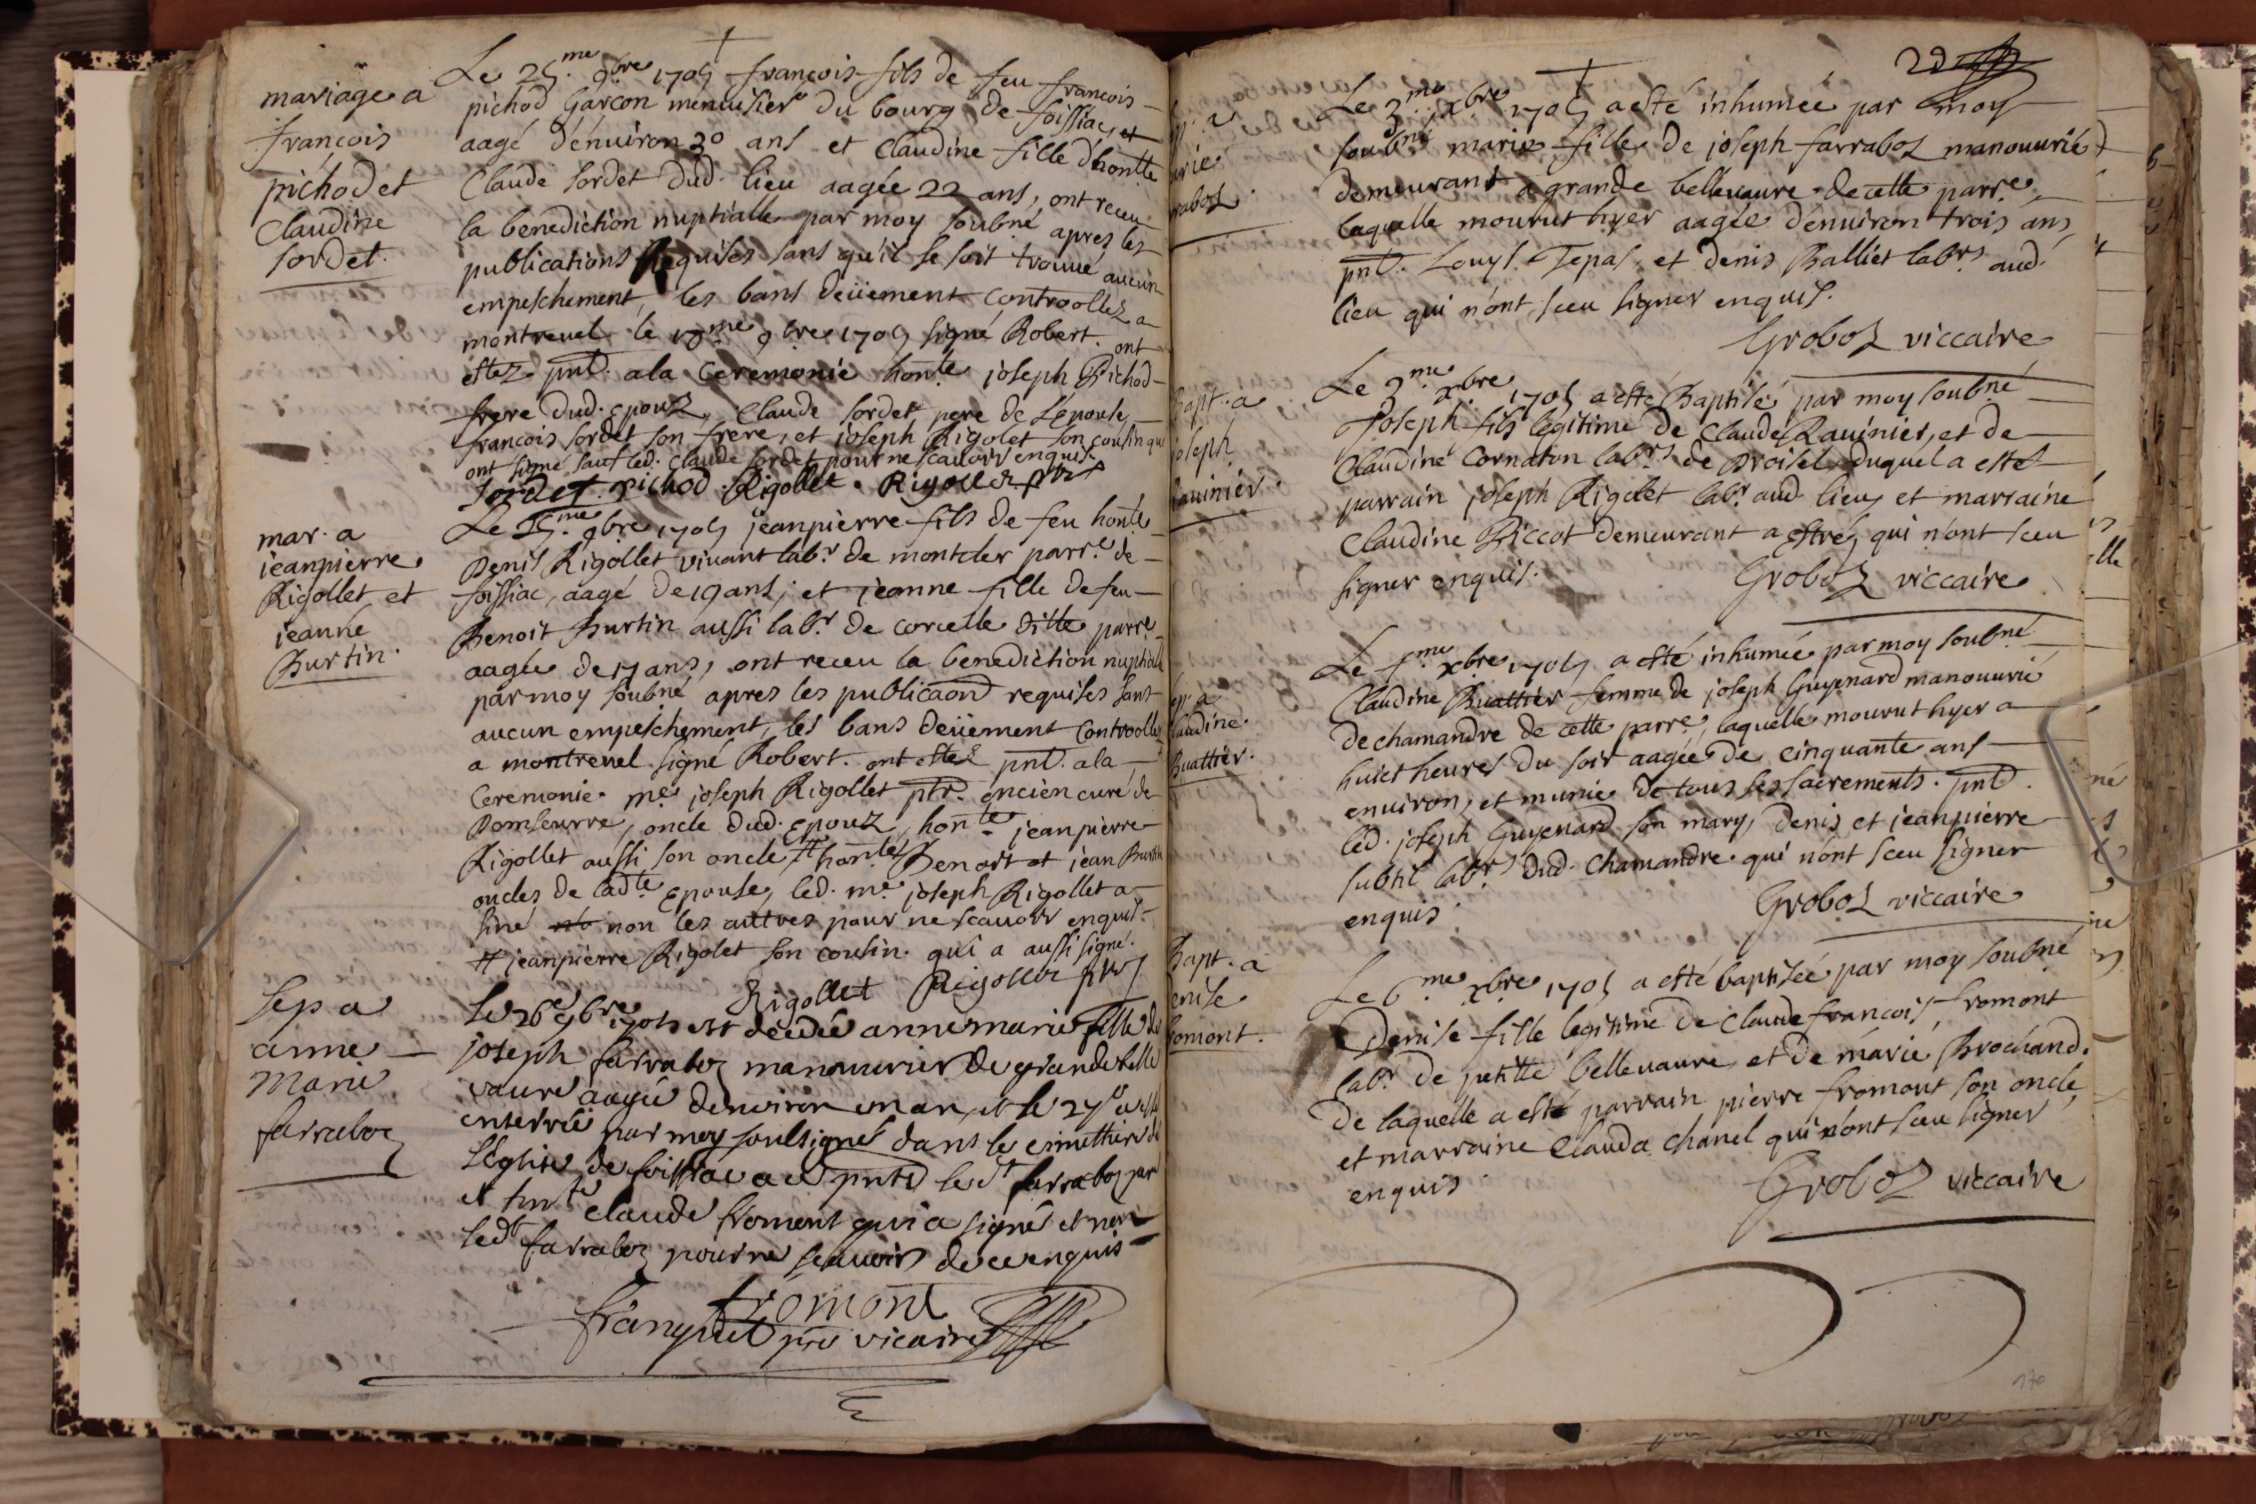 mariage a
françois
pichod et
Claudine
sordet.
Le 25.me 9bre 1705 françois fils de feu françois
pichod Garcon menuisier du bourg de foissiac, et
aagé d'énuiron 30 ans et Claudine fille d'hon.te
Claude sordet dud. lieu aagée 22 ans, ont receu
la benediction nuptialle par moy soubné apres les
publications Requises sans qu'il se soit trouué aucun
empeschement, les bans deüement controollez a
montreuel le 18me 9bre 1705 signé Robert. ont
estez pnt. a la Ceremonie hon.te joseph Pichod
frere dud. Epoux, Claude sordet pere de l'epouse,
francois sordet son frere, et joseph Rigolet son cousin qui
ont signé sauf led. Claude sordet pour ne scauoir enquis.
Sordet. pichod. Rigollet. Rigollet ptre
mar. a
jeanpierre
Rigollet et
jeanne
Burtin.
Le 25.me 9bre 1705 jeanpierre fils de feu hon.te
Denis Rigollet viuant labr. de montcler parr.e de
foissiac, aagé de 19 ans, et jeanne fille de feu
Benoit Burtin aussi labr. de corcelle ditte parr.e
aagée de 17 ans, ont receu la benediction nuptialle
par moy soubné apres les publicaon requises sans
aucun empeschement, les bans deüement Controollez
a montreuel signé Robert. ont estez pnt. a la
Ceremonie me. joseph Rigollet ptr. encien curé de
Domseurre, oncle dud. Epoux, hon.te jeanpierre
Rigollet aussi son oncle # hon.te Benoit et jean Burtin
oncles de ladte. Epouse, led. me. joseph Rigollet a
siné non les auttres pour ne scauoir enquis.
# jeanpierre Rigolet son cousin qui a aussi signé.
Rigollet Rigollet ptre
sep a
anne
Marie
farraboz
le 26e 9bre 1705 est décédée annemarie fille de
joseph farraboz manouurier de grande belle
vaure aagée denuiron un an, et le 27e a esté
enterrée par moy soussigné dans le cimettiere de
l'église de foissiac a ce pnts led.t farraboz pere
et hon.te claude froment qui a signé et non
led.t farraboz pour ne scauoir de ce enquis
fromont
franquet ptre vicaire
22
rie
raboz.
Le 3.me xbre 1705 a esté inhumée par moy
soubné marie fille de joseph farraboz manouurié
demeurant a grande belleuaure de cette parr.e,
laquelle mourut hyer aagée d'enuiron trois ans,
pnt. Louys Tepas, et denis Balliet labrs. aud.
lieu qui n'ont sceu signer enquis.
Groboz viccaire
Bapt. a
joseph
Rauinier.
Le 3.me xbre 1705 a esté Baptisé par moy soubné
joseph fils légitime de Claude Rauinier, et de
Claudine Cornaton labrs. de Droisel, duquel a estez
parrain joseph Rigolet labr. aud. lieu, et marraine
Claudine Piccot demeurant a estré, qui n'ont sceu
signer enquis.
Groboz viccaire
sep. a
Claudine
Buattier.
Le 5.me xbre 1705 a esté inhumée par moy soubné
Claudine Buattier femme de joseph Guyenard manouurié
de chamandre de cette parr.e, laquelle mourut hyer a
huict heures du soir aagée de cinquante ans
enuiron, et munie de tous les sacrements. pnt.
led. joseph Guyenard son mary, denis et jeanpierre
subtil labrs. dud. Chamandre qui n'ont sceu signer
enquis.
Groboz viccaire
Bapt. a
Denise
fromont.
Le 6.me xbre 1705 a esté baptisée par moy soubné
Denise fille legitime de Claude françois fromont
labr. de petitte belleuaure, et de marie Brochand.
de laquelle a esté parrain pierre fromont son oncle,
et marraine Clauda Chanel qui n'ont sceu signer
enquis.
Groboz viccaire
170